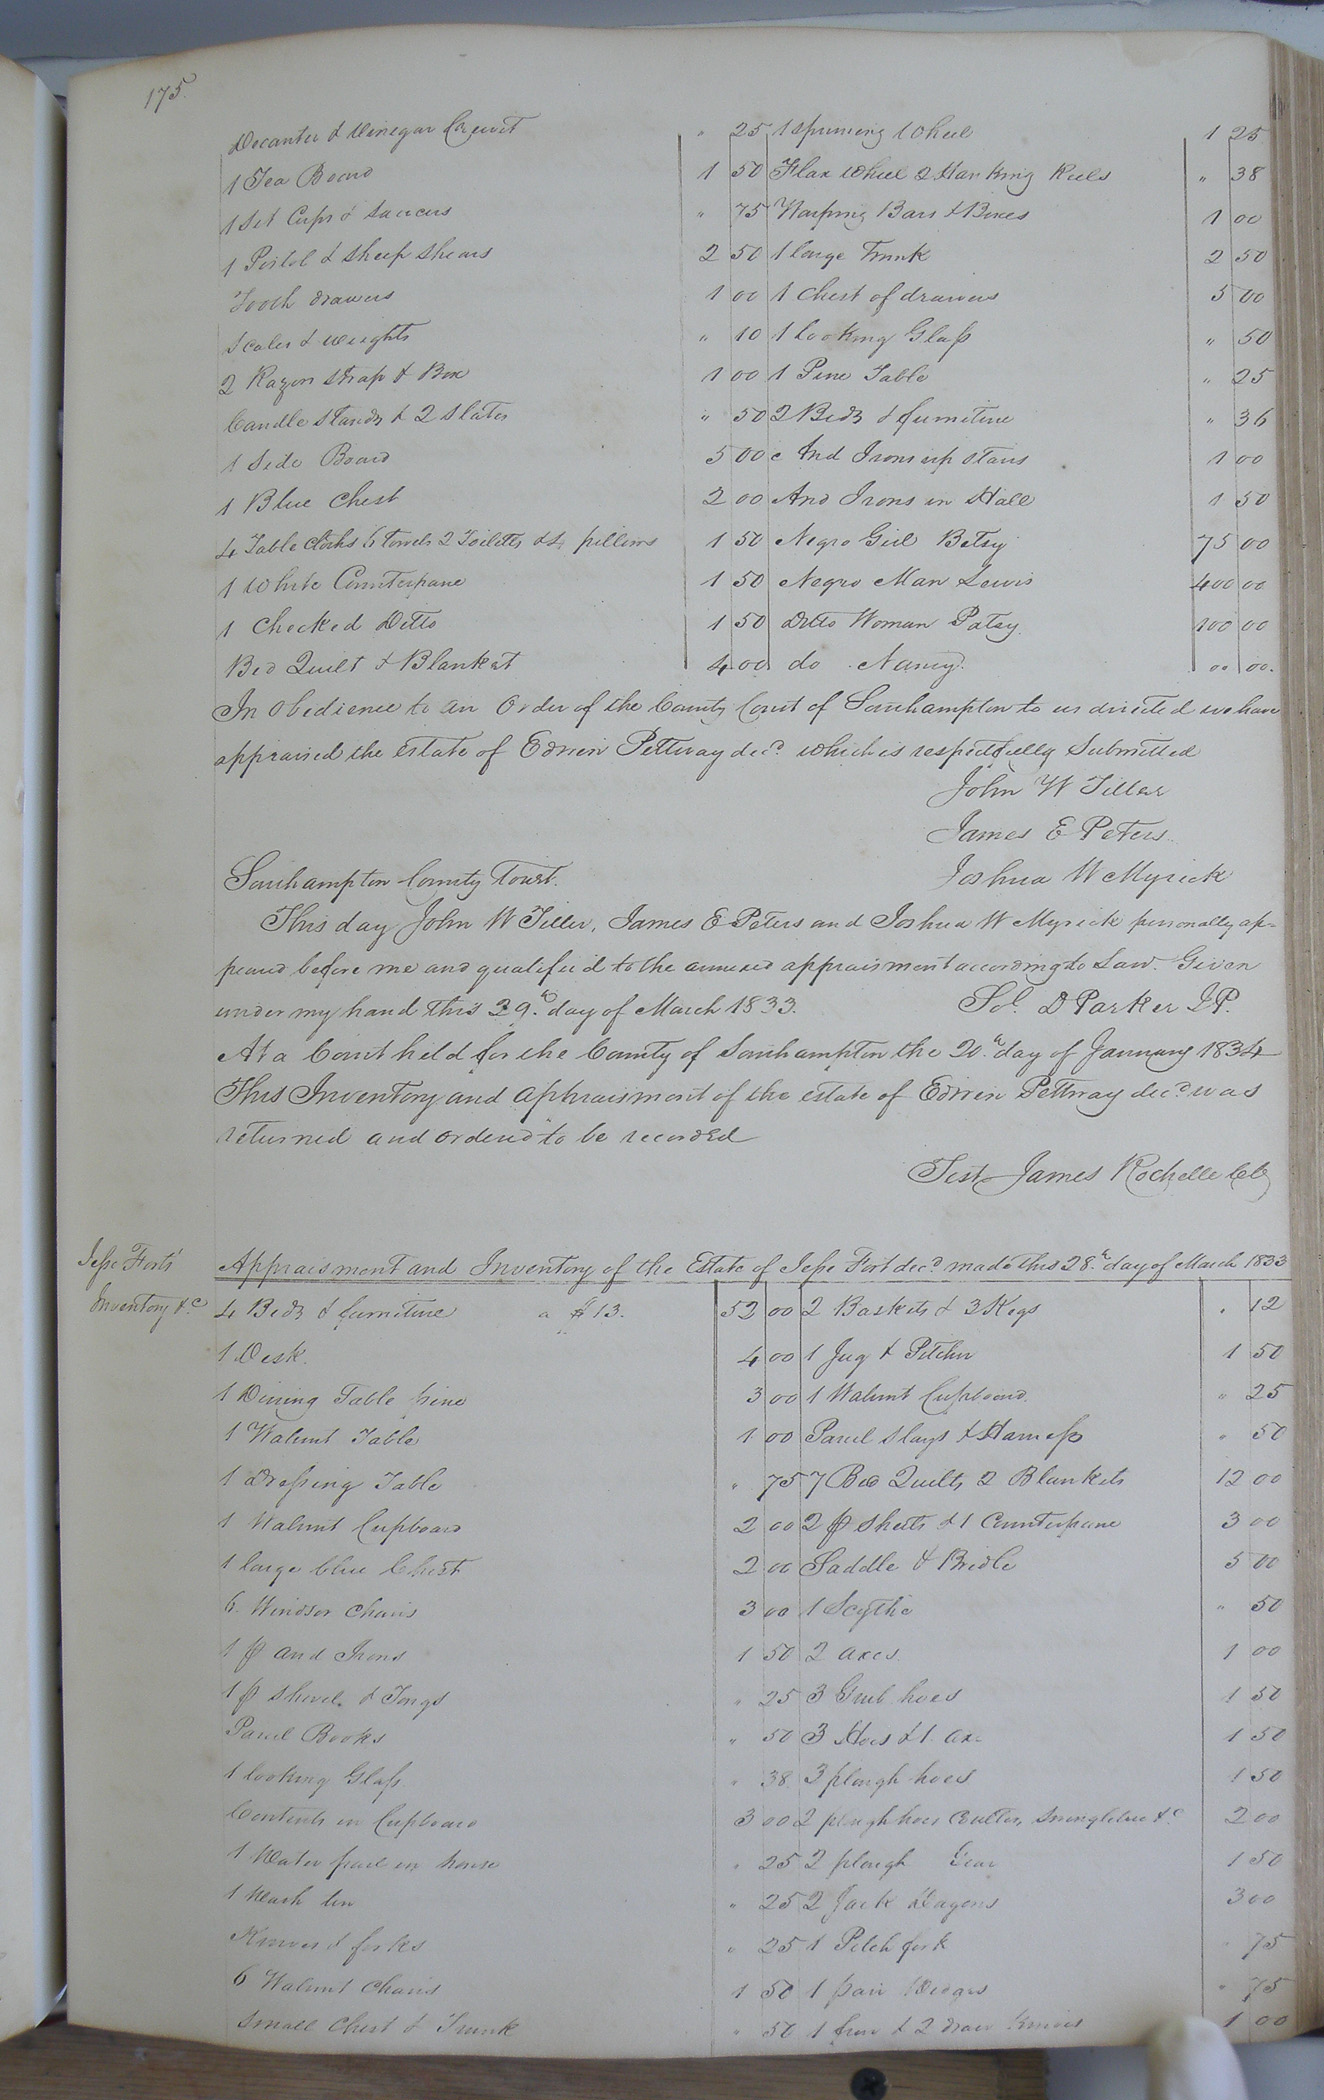 175.
Decanter & Vinegar Cruit " 25 1 Spinning Wheel 1 25
1 Tea Board 1 50 Flax Wheel 2 Hanking Reels " 38
1 Set Cups & Saucers " 75 Warping Bars & Boxes 1 00
1 Pistol & Sheep Shears 2 50 1 large Trunk 2 50
Tooth drawers 1 00 1 Chest of drawers 5 00
Scales & weights " 10 1 looking Glass " 50
2 Razors Strap & Box 1 00 1 Pine Table " 25
Candle Stands & 2 Slates " 50 2 Beds & furniture " 36
1 Side Board 5 00 And Irons up Stairs 1 00
1 Blue Chest 2 00 And Irons in Hall 1 50
4 Table Cloths 6 towels 2 Toiletts & 4 pillows 1 50 Negro Girl Betsy 75 00
1 White Counterpane 1 50 Negro Man Lewis 400 00
1 Checked Ditto 1 50 Ditto Woman Patsy 100 00
Bed Quilt & Blanket 4 00 do Nancy. 00 00.
In Obedience to an Order of the County Court of Southampton to us directed we have
appraised the Estate of Edwin Pettway decd. which is respectfully Submitted
John W Tiller
James E Peters
Joshua W Myrick
Southampton County Court.
This day John W Tiller, James E Peters and Joshua W Myrick personally ap=
peared before me and qualified to the annexed appraisment according to Law. Given
under my hand this 29.th day of March 1833. Sol. D Parker J.P.
At a Court held for the County of Southampton the 20.th day of January 1834
This Inventory and Appraisment of the estate of Edwin Pettway decd. was
returned and ordered to be recorded
Test James Rochelle Clk
Jesse Forts' Inventory &c
Appraisment and Inventory of the Estate of Jesse Fort decd. made this 28.th day of March 1833
4 Beds & furniture a $13. 52 00 2 Baskets & 3 Kegs " 12
1 Desk. 4 00 1 Jug & Pitcher 1 50
1 Dining Table pine 3 00 1 Walnut Cupboard " 25
1 Walnut Table 1 00 Parcel Slays & Harness " 50
1 Dressing Table " 75 7 Bed Quilts 2 Blankets 12 00
1 Walnut Cupboard 2 00 2 pr Sheets & 1 Counterpane 3 00
1 large blue Chest 2 00 Saddle & Bridle 5 00
6. Windsor Chairs 3 00 1 Scythe " 50
1 pr and Irons 1 50 2 axes. 1 00
1 pr Shovel & Tongs " 25 3 Grub hoes 1 50
Parcel Books " 50 3 Hoes & 1 ax. 1 50
1 looking Glass " 38 3 plough hoes 1 50
Contents in Cupboard 3 00 2 plough hoes Coulter, Swingletree &c 2 00
1 Water pail in house " 25 2 plough Gear 1 50
1 Wash tin " 25 2 Jack Wagons 3 00
Knives & forks " 25 1 Pitch fork " 75
6 Walnut Chairs 1 50 1 pair Wedges " 75
Small Chest & Trunk " 50 1 & 2 draw Knives 1 00